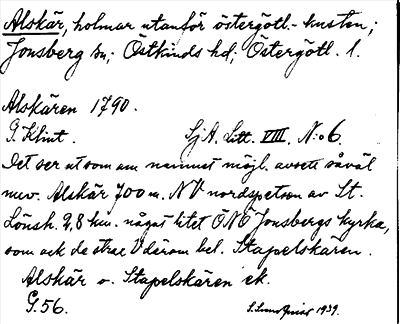 Alskär, holmar utanför östergötl.-kusten;
Jonsberg sn; Östkinds hd; Östergötl. l.
Alskären 1790.
G. Klint. SjA. Litt. VIII. N:o 6.
Det ser ut som om namnet möjl. avsett såväl
nuv. Alskär 700 m. NV nordspetsen av St.
Lönsh. 2,8 km. något litet ONO Jonsbergs kyrka,
som ock de strax V därom bel. Stapelskären.
Alskär o. Stapelskären ek.
G. 56. 1939.